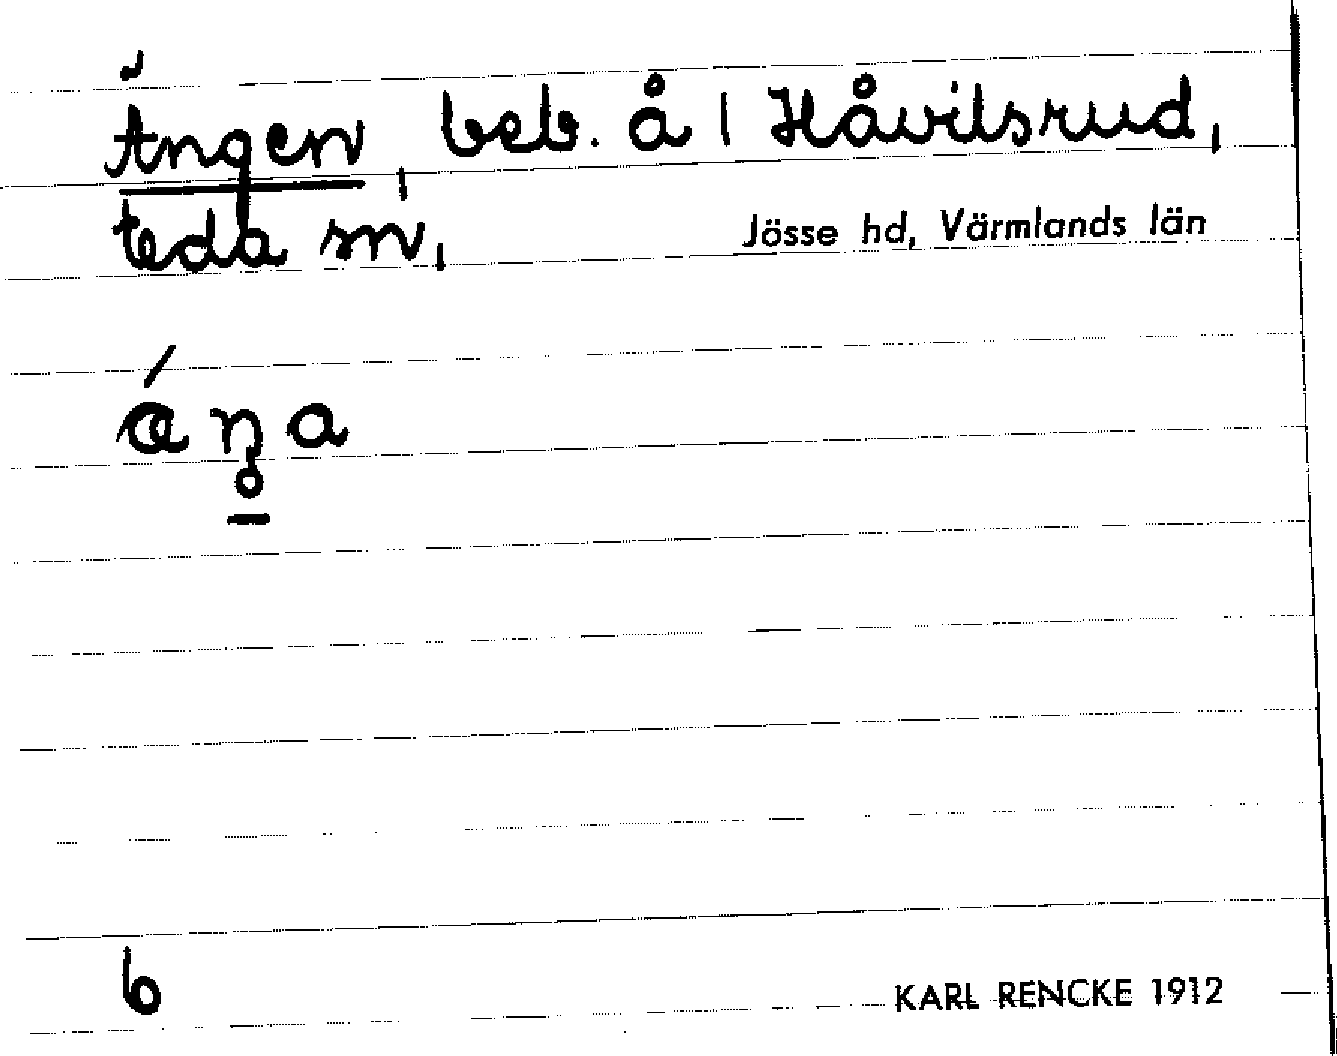 Ängen, beb. å 1 Håvilsrud,
teda sn, Jösse hd, Värmlands län
6
KARL RENCKE 1912